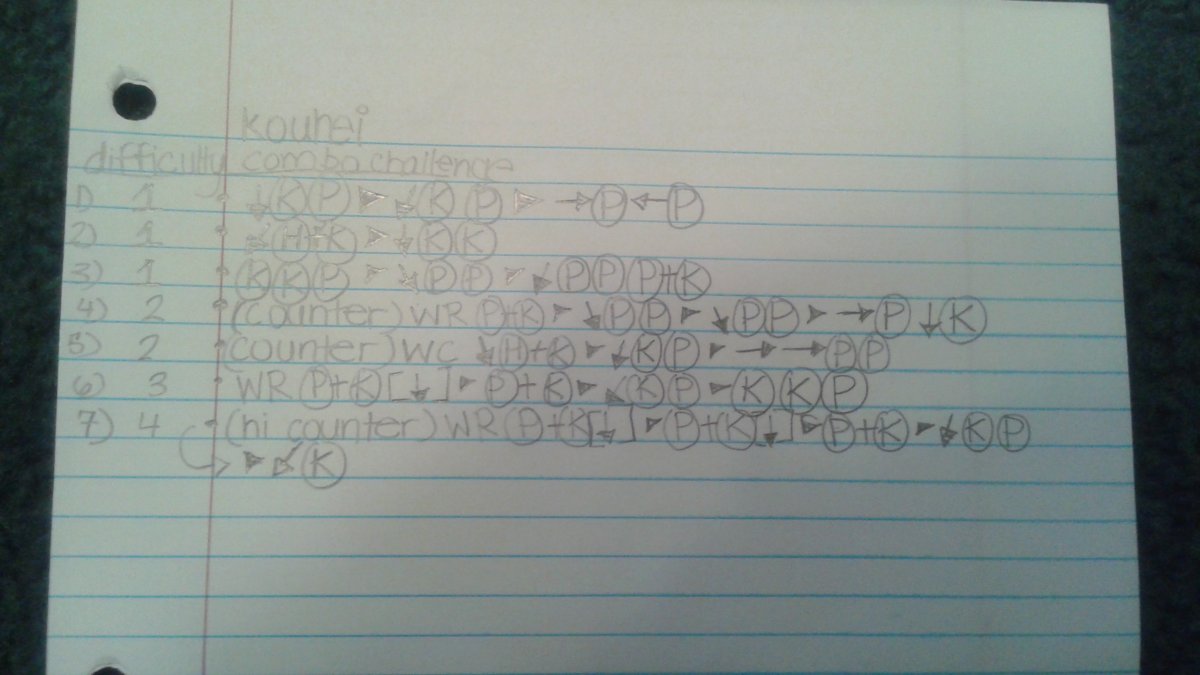 kouhei
difficulty combo challenge
1) 1 • ↓ⓀⓅ ► ↙ⓀⓅ ► →Ⓟ←Ⓟ
2) 1 • Ⓗ+Ⓚ ► ↓ⓀⓀ
3) 1 • ⓀⓀⓅ ► ↘ⓅⓅ ► ↙ⓅⓅⓅ+Ⓚ
4) 2 • (counter) WR Ⓟ+Ⓚ ► ↘ⓅⓅ ► ↘ⓅⓅ ► →Ⓟ↓Ⓚ
5) 2 • (counter) WC ↘Ⓗ+Ⓚ ► ↙ⓀⓅ ► →→ⓅⓅ
6) 3 • WR Ⓟ+Ⓚ[↓] ► Ⓟ+Ⓚ ► ↙ⓀⓅ ► ⓀⓀⓅ
7) 4 • (hi counter) WR Ⓟ+Ⓚ[↓] ► Ⓟ+Ⓚ[↓] ► Ⓟ+Ⓚ ► ↙ⓀⓅ
► ↙Ⓚ